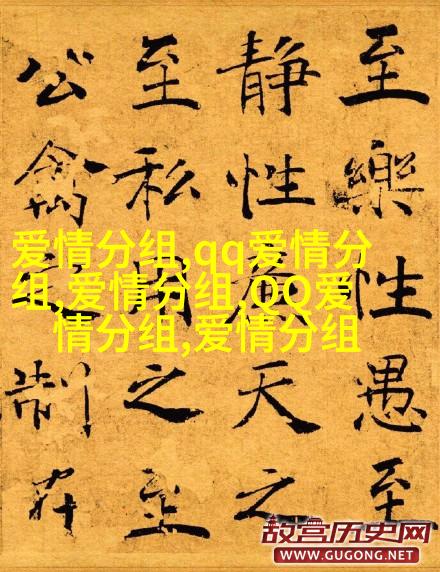 至樂性愚至
静性天之
至私用之至
公禽制在
爱情分组,qq爱情分
组,爱情分组,QQ爱
情分组,爱情分组
故宫历史网
WWW.GUGONG.NET